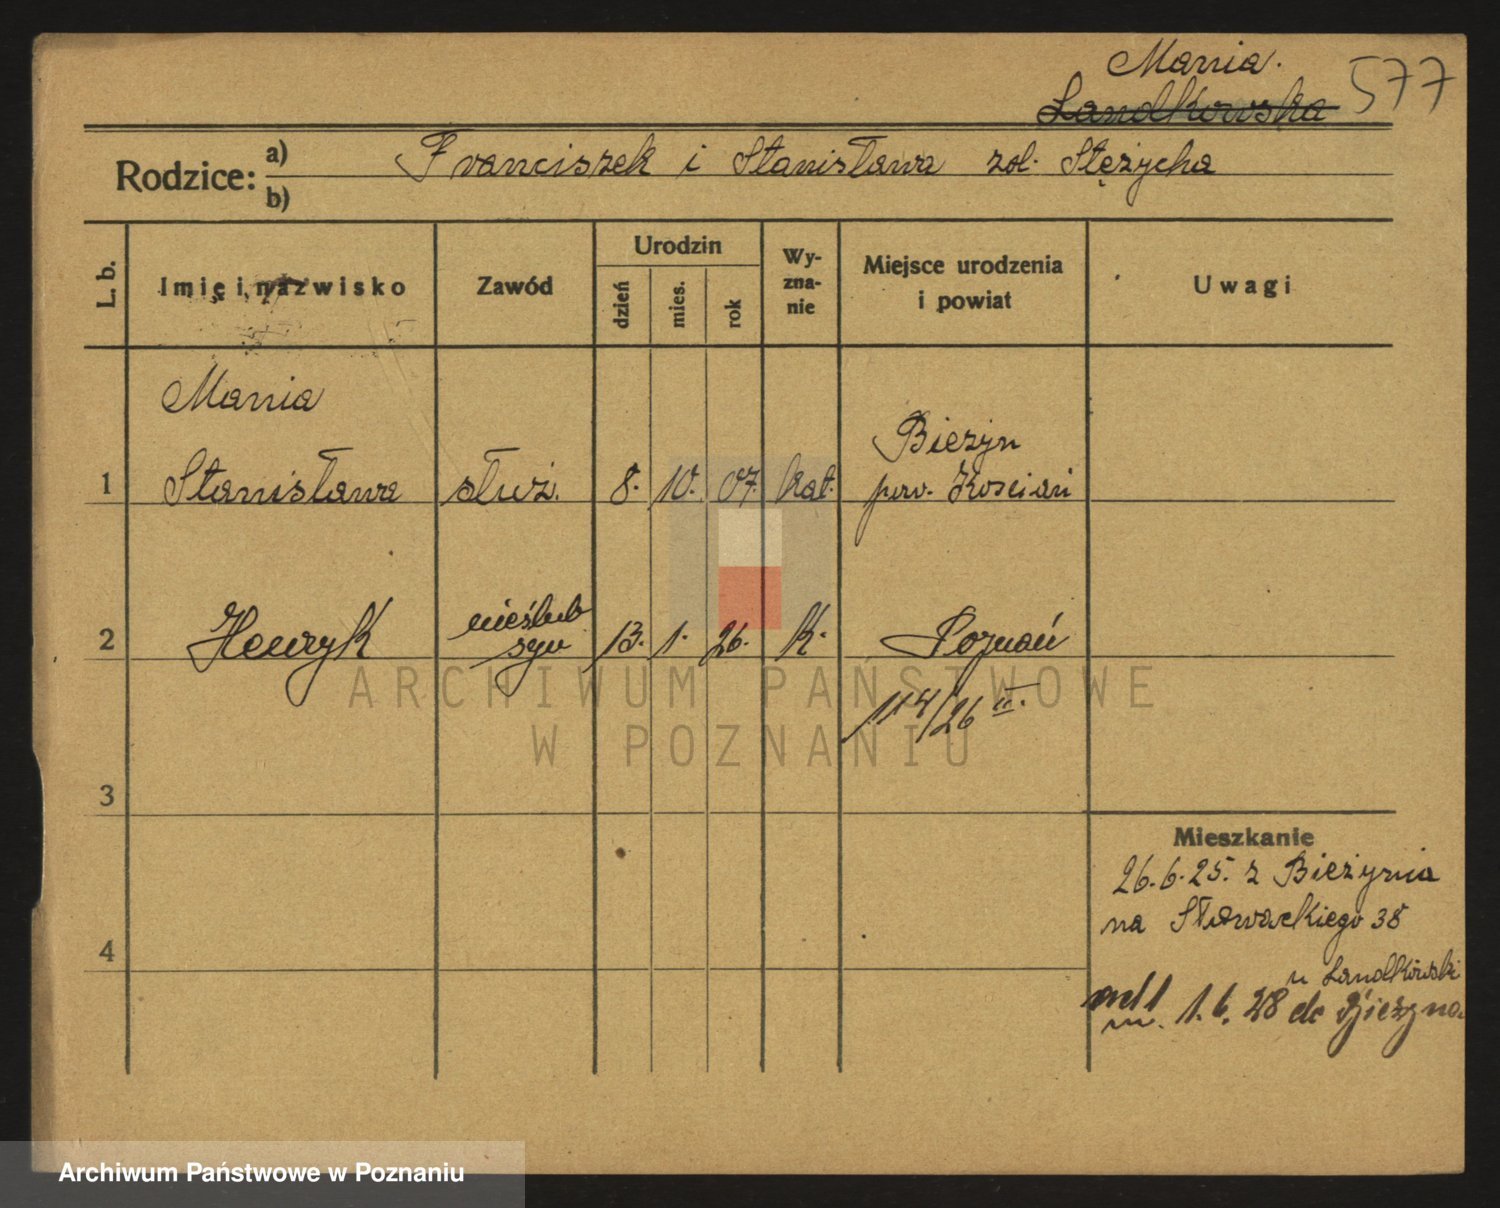 Mania.
Landkowska
577
Rodzice:
a) Franciszek i Stanisława zd. Stężycha
b)
L. b.
Imię i nazwisko
Zawód
Urodzin
dzień
mies.
rok
Wy-
zna-
nie
Miejsce urodzenia
i powiat
Uwagi
Mania
1 Stanisława służ. 8. 10. 07. kat. Bieżyn
pow. Kościan
2 Henryk nieślub
syn 13. 1. 26. k. Poznań
114/26 II.
3
4
Mieszkanie
26.6.25. z Bieżynia
na Słowackiego 38
u Landkowski
1.6.28 do Bieżyna
ARCHIWUM PAŃSTWOWE
W POZNANIU
Archiwum Państwowe w Poznaniu